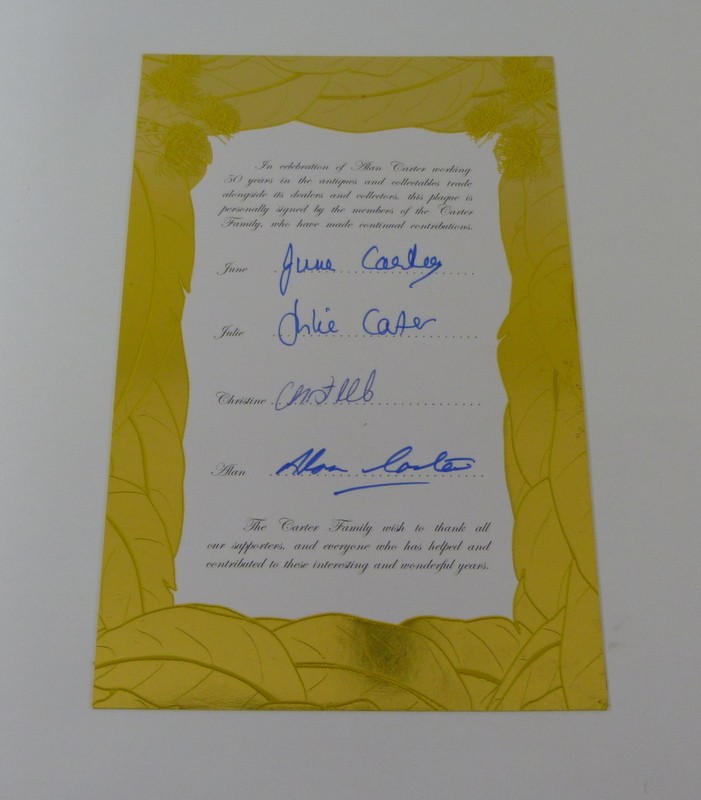 In celebration of Alan Carter working
50 years in the antiques and collectables trade
alongside its dealers and collectors, this plaque is
personally signed by the members of the Carter
Family, who have made continual contributions.
June June Carter
Julie Julie Carter
Christine
Alan Alan Carter
The Carter Family wish to thank all
our supporters, and everyone who has helped and
contributed to these interesting and wonderful years.